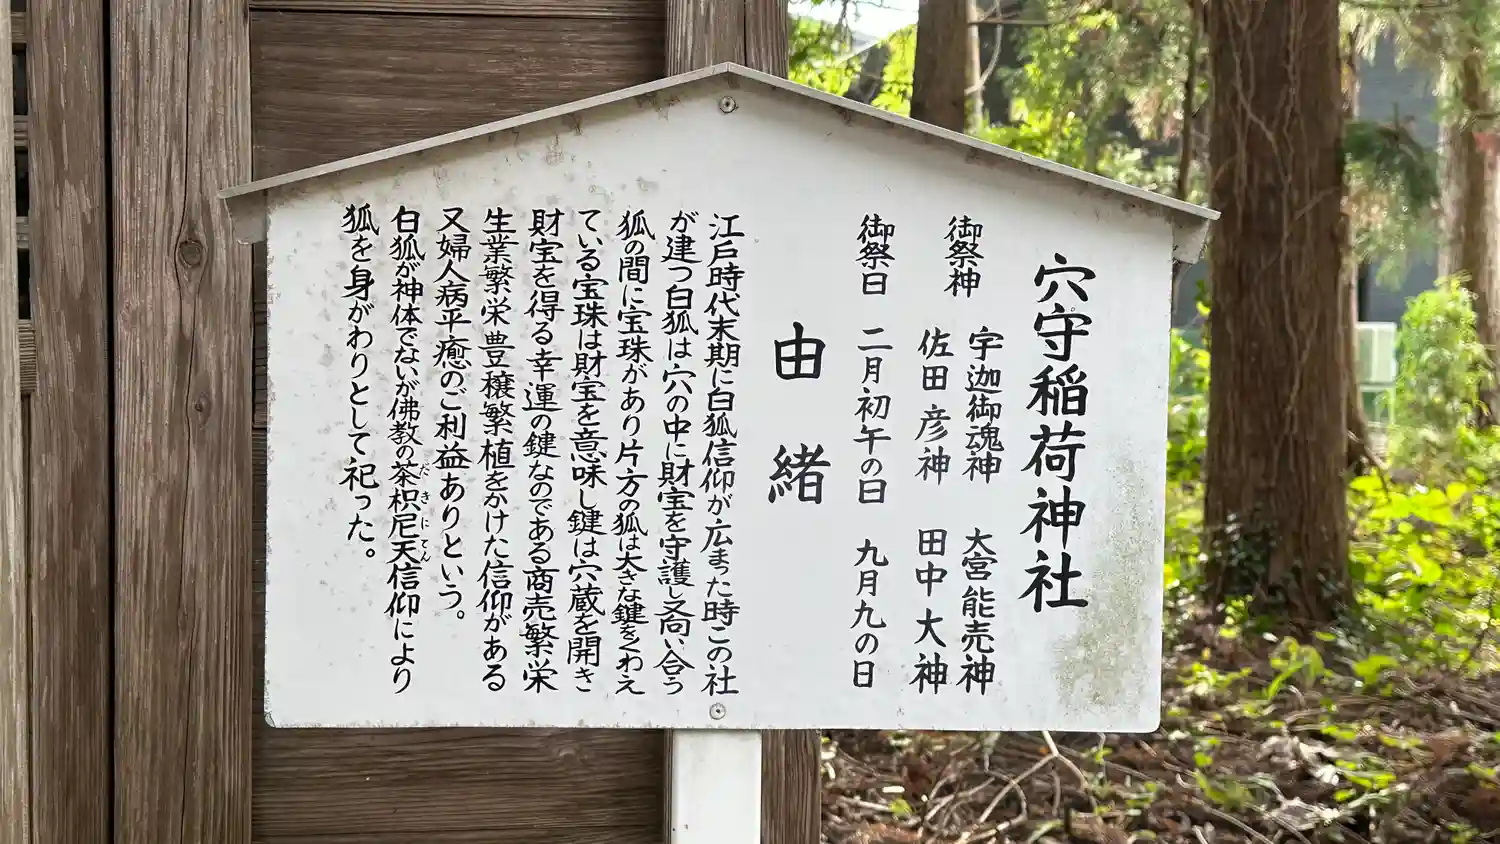 穴守稲荷神社
御祭神
宇迦御魂神 大宮能売神
佐田彦神 田中大神
御祭日 二月初午の日 九月九の日
由緒
江戸時代末期に白狐信仰が広まった時この社
が建つ白狐は穴の中に財宝を守護し又向い合う
狐の間に宝珠があり片方の狐は大きな鍵をくわえ
ている宝珠は財宝を意味し鍵は穴蔵を開き
財宝を得る幸運の鍵なのである商売繁栄
生業繁栄豊穣繁植をかけた信仰がある
又婦人病平癒のご利益ありという。
白狐が神体でないが佛教の茶枳尼天信仰により
だきにてん
狐を身がわりとして祀った。